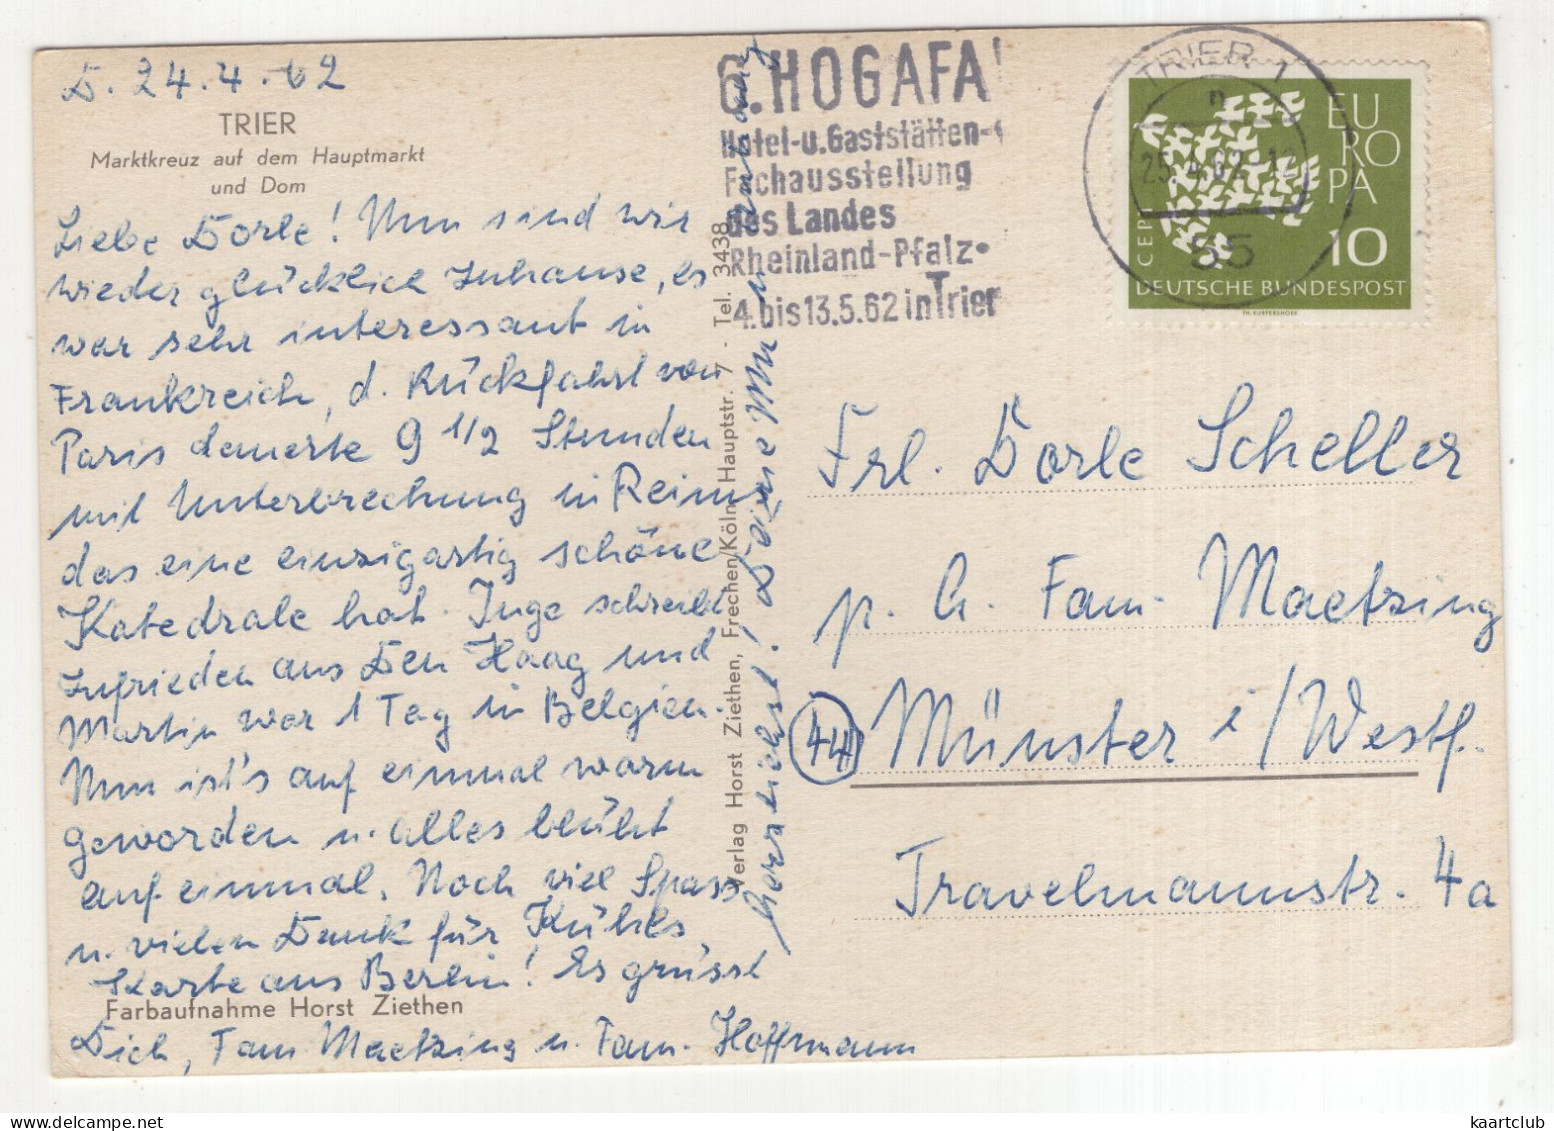 D. 24.4.62
TRIER
Marktkreuz auf dem Hauptmarkt
und Dom
Liebe Dorle! Nun sind wir
wieder glücklich Zuhause, es
war sehr interessant in
Frankreich, d. Rückfahrt von
Paris dauerte 9 1/2 Stunden
mit Unterbrechung in Reims
das eine einzigartig schöne
Katedrale hat. Inge schreibt
zufrieden aus Den Haag und
Martin war 1 Tag in Belgien.
Nun ist's auf einmal warm
geworden u. alles blüht
auf einmal. Noch viel Spass
u. vielen Dank für Kühles
Karte aus Berlin! Es grüsst
Farbaufnahme Horst Ziethen
Dich, Fam Maetzing u. Fam. Hoffmann
herzlichst! Deine
Verlag Horst Ziethen, Frechen/Köln, Hauptstr. 7 - Tel. 3438
6. HOGAFA
Hotel-u. Gaststätten-
Fachausstellung
des Landes
Rheinland-Pfalz
4. bis 13.5.62 in Trier
TRIER 1
n
25.4.62-12
55
EUROPA
CEPT
10
DEUTSCHE BUNDESPOST
Frl. Dorle Scheller
p. A. Fam. Maetzing
44 Münster i/Westf.
Travelmannstr. 4a
kaartclub